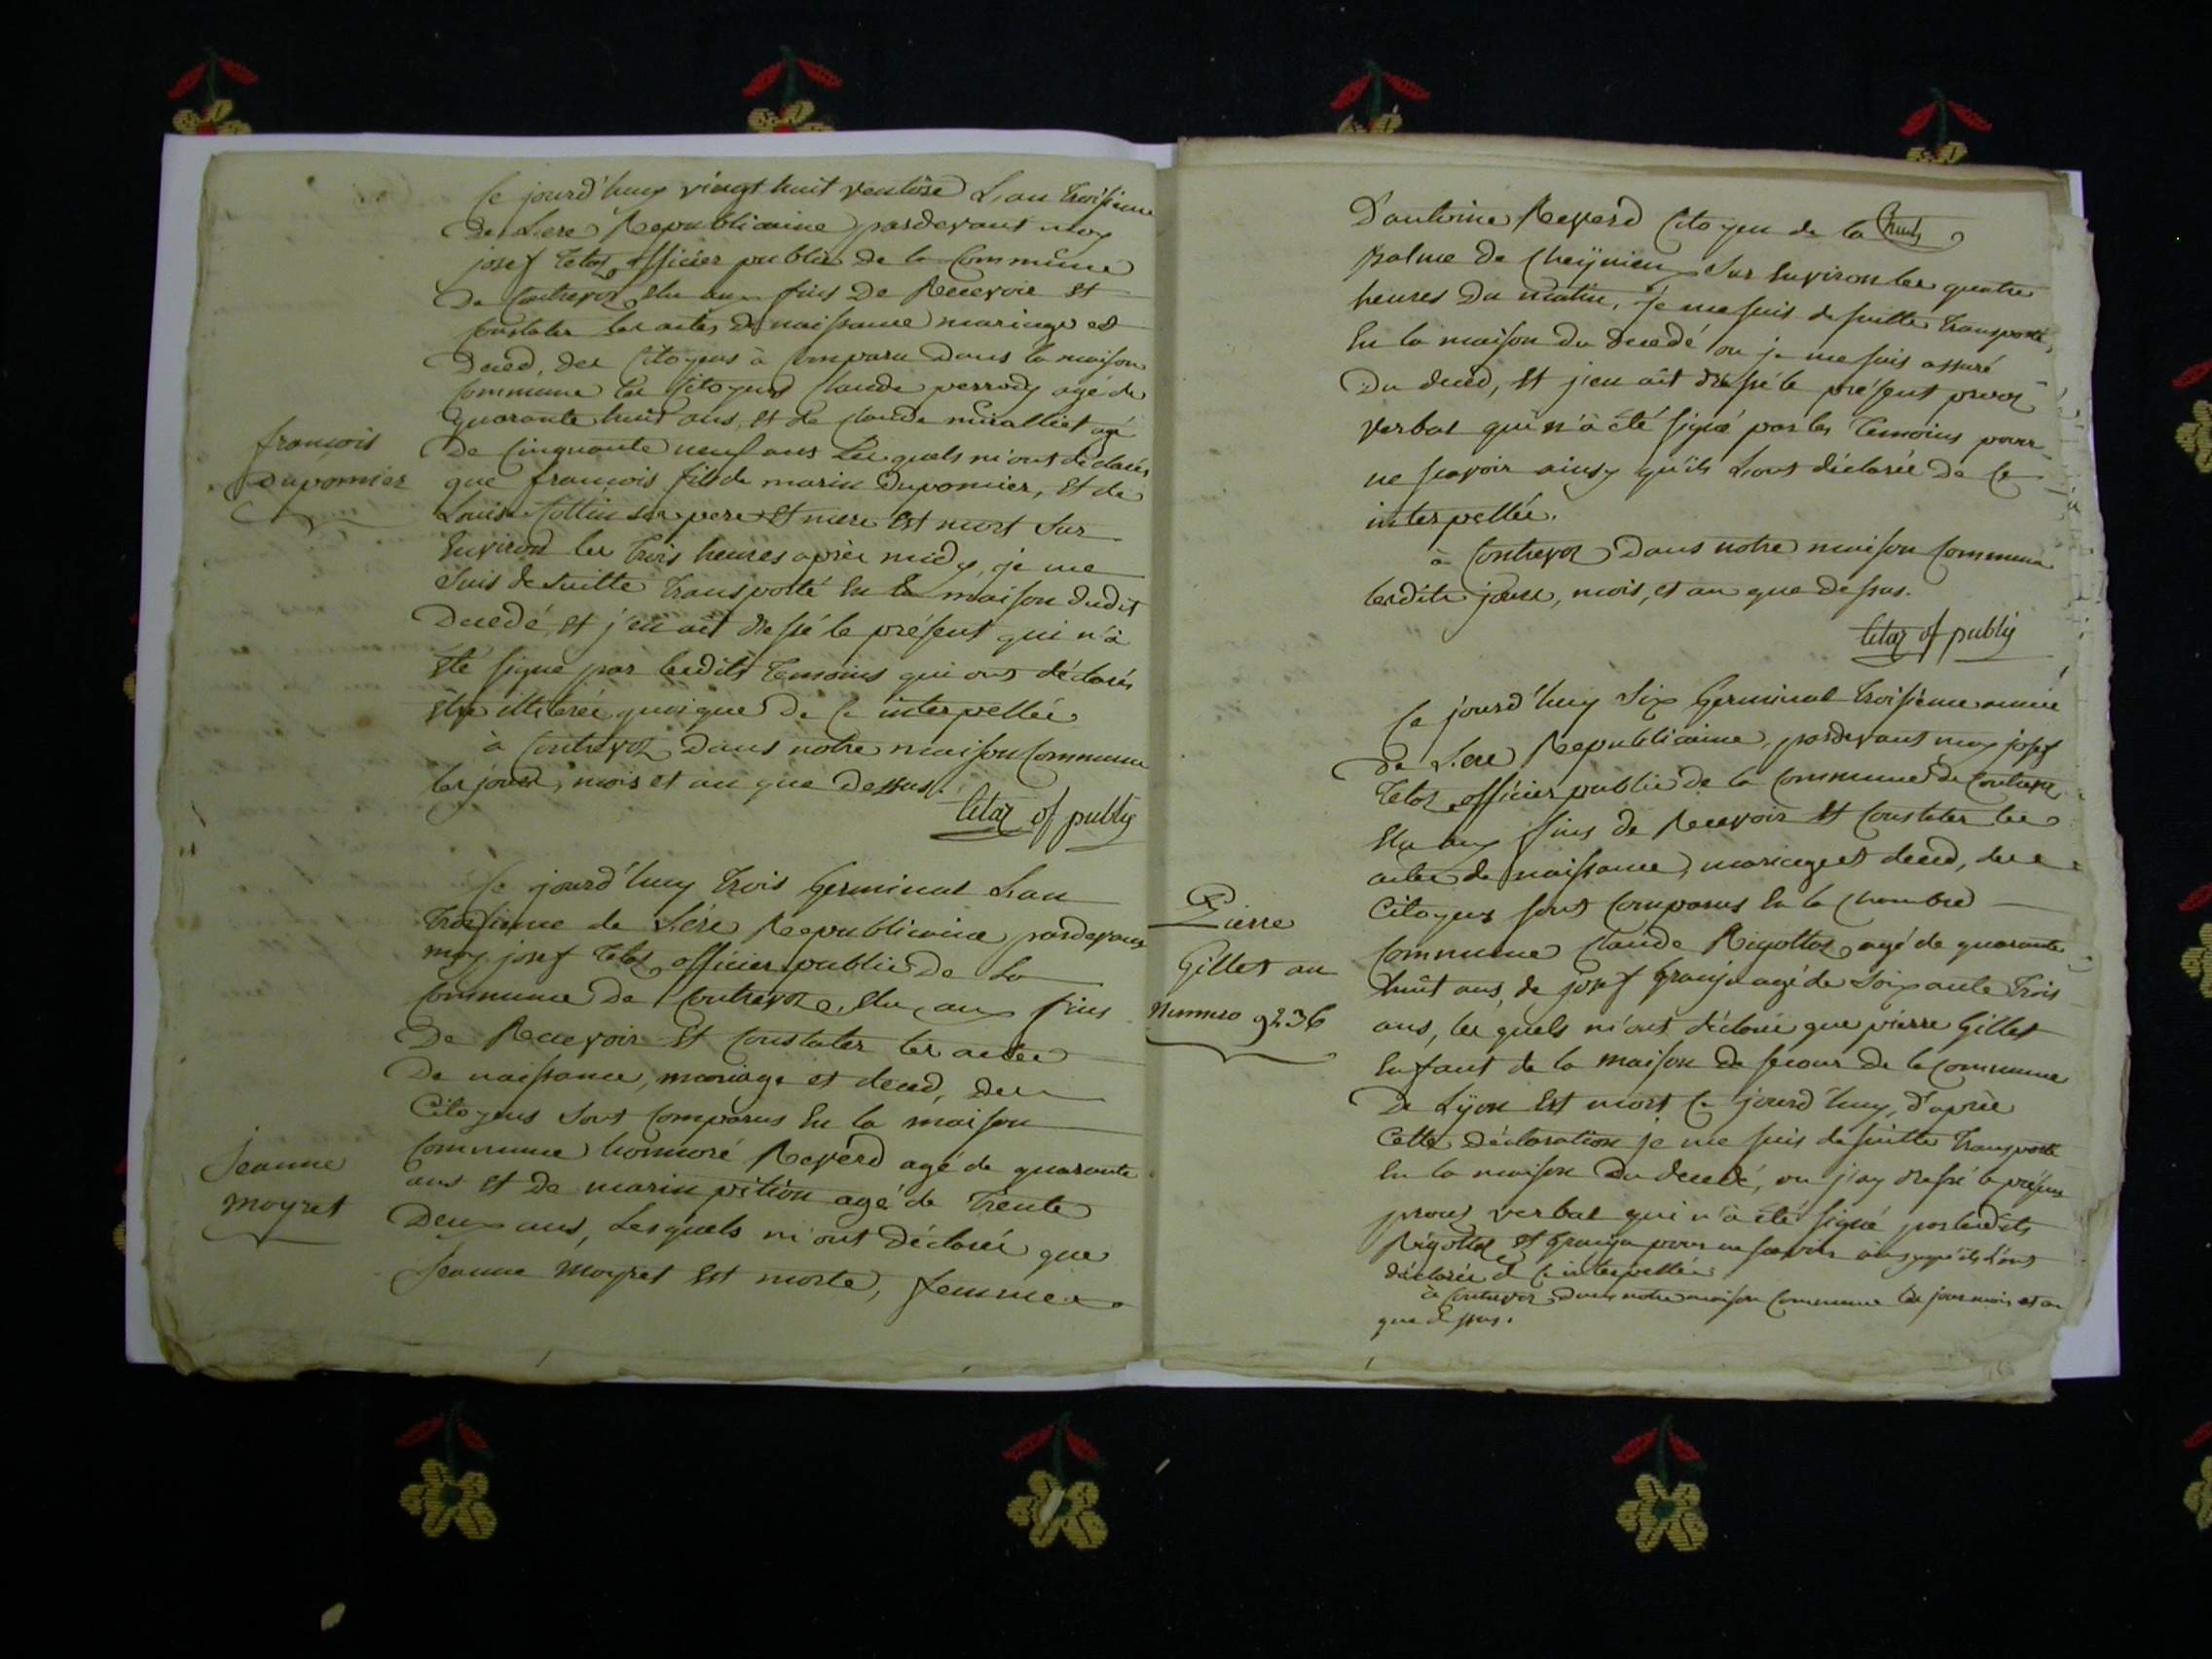 Ce jourd'huy vingt huit ventôse L'an troisieme
De L'ere Republicaine pardevant moy
josef Tetaz officier public de la Commune
De Contrevoz Elu aux fins De Recevoir Et
Constater les actes De naissance mariage et
Deced, des Citoyens à Comparu Dans la maison
Commune Les Citoyens Claude perrody agé de
quarante huit ans, Et de Claude miralliet agé
francois
Duponnier
De Cinquante neuf ans Les quels m'ont déclarés
que francois fils de marin Duponnier, Et de
Louise Cottin ses pere Et mere Est mort Sur
Environ les trois heures après midy, je me
Suis de suitte transporté En la maison dudit
Decedé, Et j'en ait dressé le présent qui n'à
Eté signé par lesdits temoins qui ont déclarés
être illiterée quoique De Ce interpellée
à Contrevoz Dans notre maison Commune
les jour, mois et an que dessus.
tetaz of public
Ce jourd'huy trois Germinal L'an
troisieme de L'ére Republicaine pardevant
moy josef Tetaz officier public De La
Commune De Contrevoz Elu aux fins
De Recevoir Et Constater les actes
De naissance, mariage et deced, des
Citoyens Sont Comparus En la maison
Commune honnoré Reverd agé de quarante
ans Et De marin pition agé de trente
Jeanne
moyret
Deux ans, Lesquels m'ont Déclarée que
Jeanne Moyret Est morte, femme
D'antoine Reverd Citoyen de la
palme De Cheÿnieu Sur Environ les quatre
heures Du matin, je me suis de suitte transporté,
En la maison Du Decedé ou je me suis assuré
Du deced, Et j'en ait dressé le présent procè
verbal qui n'à été signé par les temoins pour
ne scavoir ainsy qu'ils L'ont déclarée De Ce
interpellée.
à Contrevoz Dans notre maison Commune
lesdits jour, mois, et an que dessus.
tetaz of public
Ce jourd'huy Six Germinal troisieme année
De L'ere Republicaine, pardevant moy josef
Tetaz officier public de la Commune de Contrevoz
Elu aux fins de Recevoir Et Constater les
actes de naissance, mariage et deced, des
Citoyens sont Comparus En la Chambre
Pierre
Gillet au
Numero 9236
Commune Claude Rigottaz agé de quarante
huit ans, de josef Granju agé de Soixante trois
ans, les quels m'ont déclaré que pierre Gillet
Enfant de la maison de secour de la Commune
De Lÿon Est mort Ce jourd'huy, d'après
Cette Déclaration je me suis de suitte transporté
En la maison Du decedé, ou j'ay dressé le présent
procès verbal qui n'à été signé par lesdits
Rigottaz Et Granju pour ne scavoir ainsy qu'ils L'ont
déclarée de Ce interpellée
à Contrevoz Dans notre maison Commune les jour mois et an
que dessus.